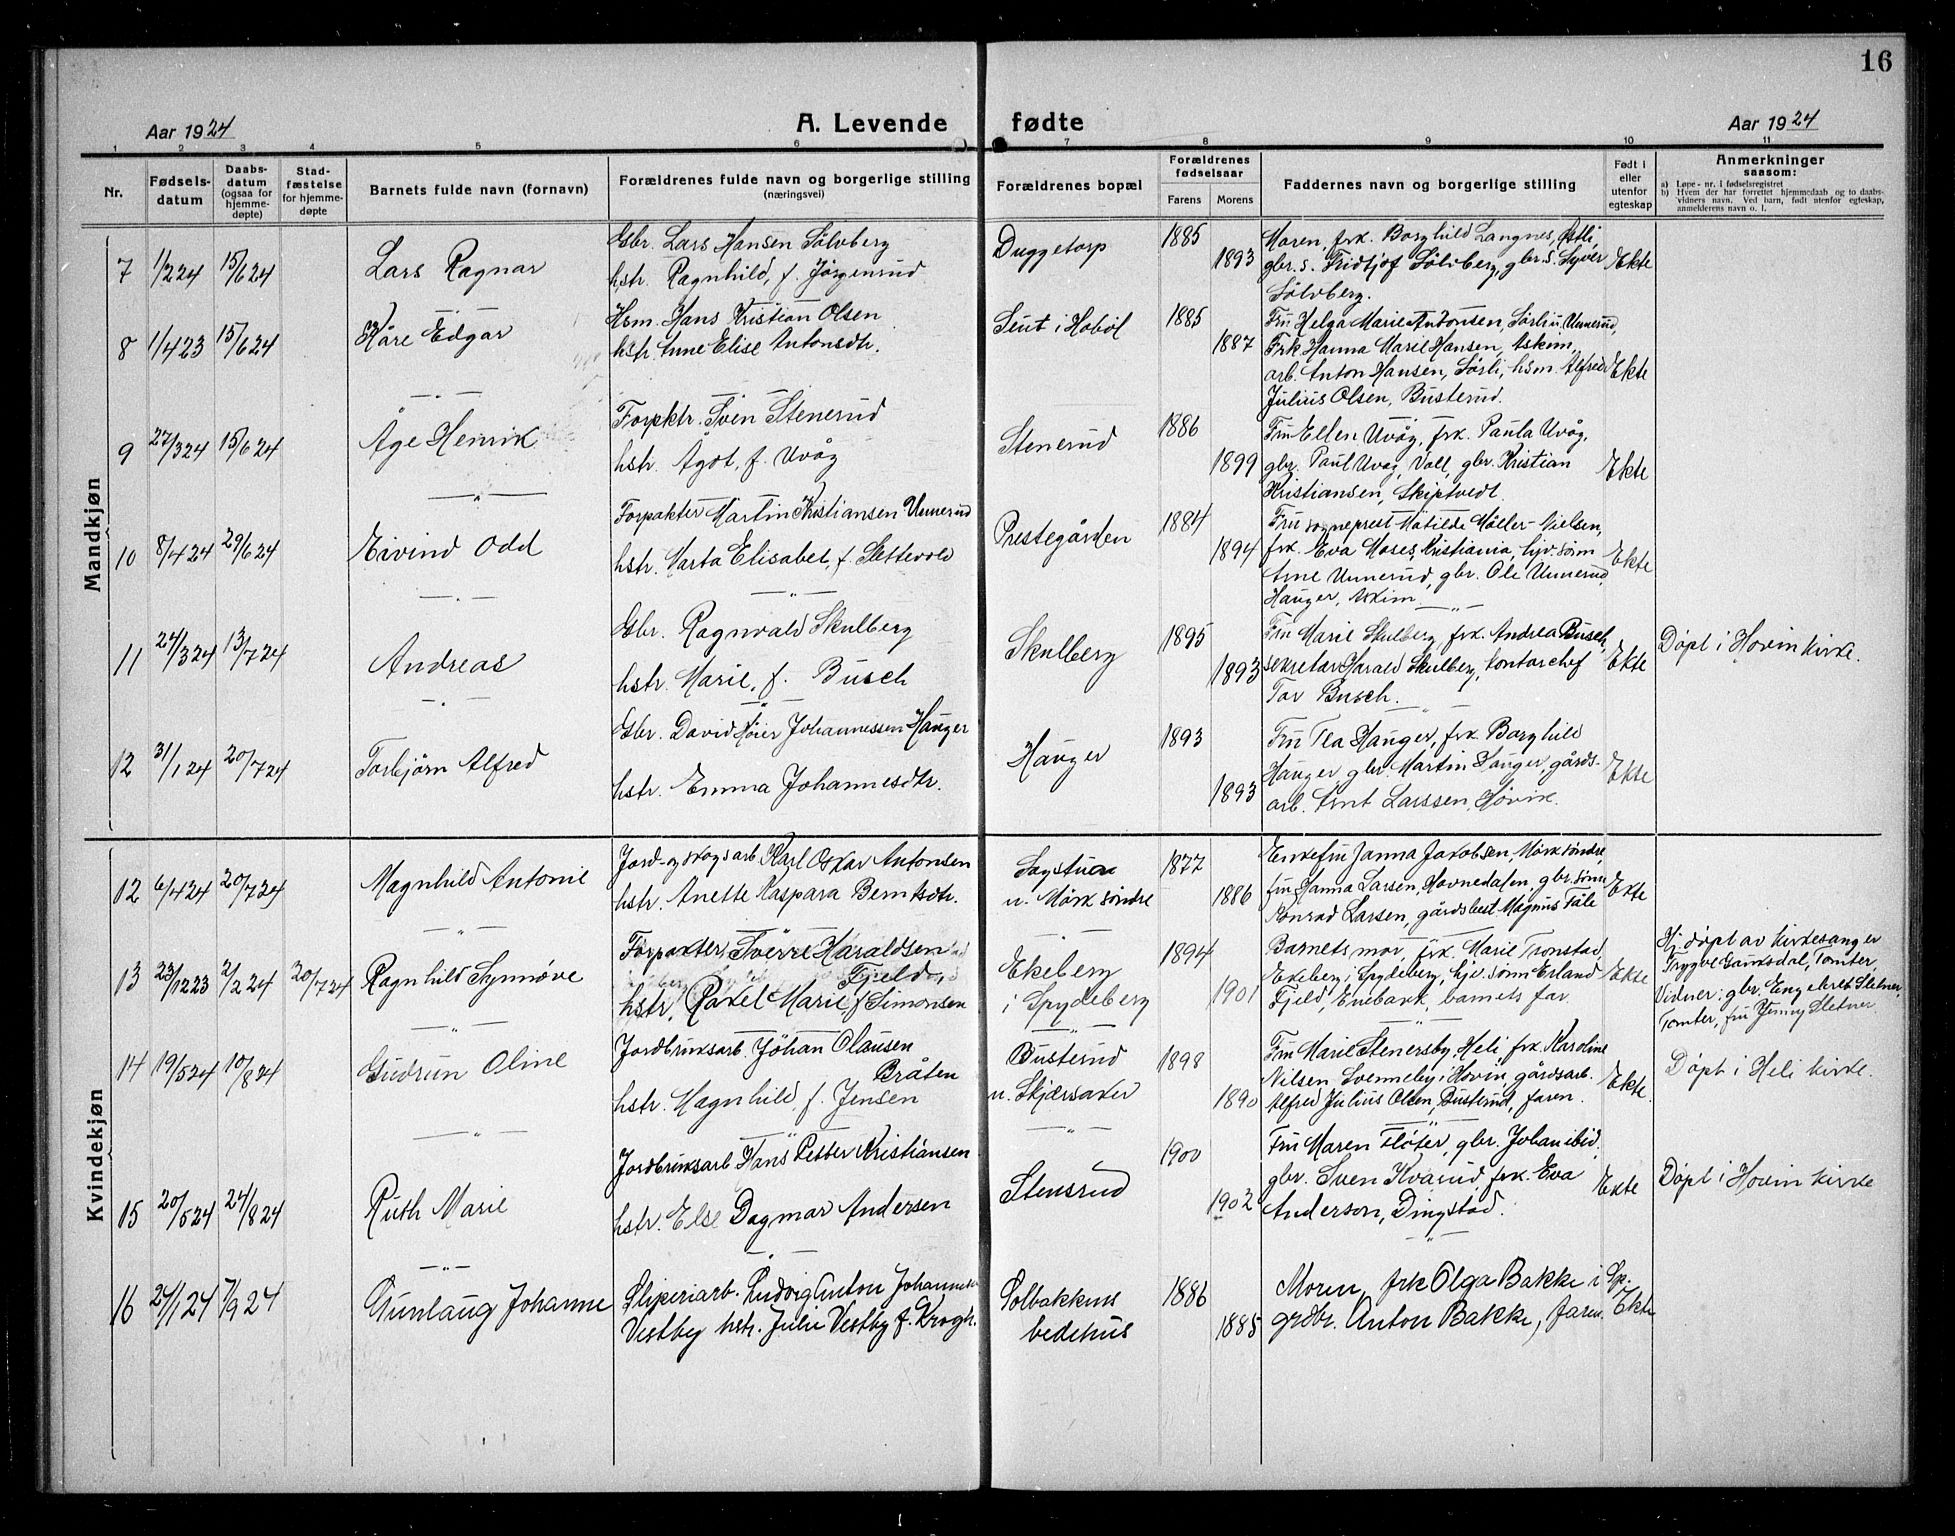 16
Aar 1924 A. Levende fødte Aar 1924
1 2 3 4 5 6 7 8 9 10 11
Nr. Fødsels-datum Daabs-datum (ogsaa for hjemme-døpte) Stad-fæstelse for hjemme-døpte Barnets fulde navn (fornavn) Forældrenes fulde navn og borgerlige stilling (næringsvei) Forældrenes bopæl Forældrenes fødselsaar Farens Morens Faddernes navn og borgerlige stilling Født i eller utenfor egteskap Anmerkninger saasom:
a) Løpe-nr. i fødselsregistret
b) Hvem der har forrettet hjemmedaab og to daabs-vidners navn. Ved barn, født utenfor egteskap, anmelderens navn o. l.
Mandkjøn
7 1/2 24 15/6 24 Lars Ragnar
Gbr. Lars Hansen Sølvberg
hstr. Ragnhild, f. Jørgensrud
Duggetorp 1885 1893
Moren, frk. Borghild Langnes, Østli,
gbr.s. Fridtjof Sølvberg, gbr.s. Syver
Sølvberg.
Ekte
8 1/4 23 15/6 24 Kåre Edgar
Hsm. Hans Kristian Olsen
hstr. Anne Elise Antonsdtr.
Seut i Hobøl 1885 1887
Fru Helga Marie Antonsen, Sørli u. Unnerud,
Frk. Hanna Marie Hansen, Askem,
arb. Anton Hansen, Sørli, hsm. Alfred
Julius Olsen, Busterud.
Ekte
9 27/3 24 15/6 24 Åge Henrik
Forpktr. Sven Stenerud
hstr. Ågot, f. Uvåg
Stenerud 1886 1899
Fru Ellen Uvåg, frk. Paula Uvåg,
gbr. Paul Uvåg, Voll, gbr. Kristian
Kristiansen, Skiptvedt.
Ekte
10 8/4 24 29/6 24 Eivind Odd
Forpakter Martin Kristiansen Unnerud
hstr. Marta Elisabet, f. Slettevold
Prestegården 1884 1894
Fru sogneprest Matilde Møller-Nielsen,
frk. Eva Moses, Kristiania, hjv. sønn
Arne Unnerud, gbr. Ole Unnerud,
Hauger, Askim
Ekte
11 24/3 24 13/7 24 Andreas
Gbr. Ragnvald Skulberg
hstr. Marie, f. Busch
Skulberg 1895 1893
Fru Marie Skulberg, frk. Andrea Busch,
sekretær Harald Skulberg, kontorchef
Tor Busch.
Ekte
Døpt i Hovin kirke.
12 31/1 24 20/7 24 Torbjørn Alfred
Gbr. David Høier Johannessen Hauger
hstr. Emma Johannesdtr.
Hauger 1893 1893
Fru Tea Hauger, frk. Borghild
Hauger, gbr. Martin Hauger, gårds-
arb. Arnt Larssen, Høvik.
Ekte
Kvindekjøn
12 6/4 24 20/7 24 Magnhild Antonie
Jord- og skogsarb. Karl Oskar Antonsen
hstr. Anette Kaspara Berntsdtr.
Sagstua
u. Mørk søndre 1877 1886
Enkefru Janna Jakobsen, Mørk søndre,
fru Hanna Larsen, Havnedalen, gbr. sønn
Konrad Larsen, gårdsbest. Magnus Tåle
Ekte
13 23/12 23 2/2 24 20/7 24 Ragnhild Synnøve
Forpakter Sverre Haraldsen
Fjeld,
hstr. Rakel Marie f. Simonsen
Ekeberg
i Spydeberg 1894 1901
Barnets mor, frk. Marie Tronstad,
Ekeberg i Spydeberg, hjv. sønn Erland
Fjeld, Enebakk, barnets far.
Ekte
Hj. døpt av kirkesanger
Trygve Gamsdal, Tomter
Vidner: gbr. Engebret Sletner,
Tomter, fru Jenny Sletner
14 19/5 24 10/8 24 Gudrun Oline
Jordbruksarb. Johan Olausen
Bråten
hstr. Magnhild, f. Jensen
Busterud
u. Skjærsaker 1898 1890
Fru Marie Stenersby, Heli, frk. Karoline
Nilsen, Svenneby i Hovin, gårdsarb.
Alfred Julius Olsen, Busterud, faren.
Ekte
Døpt i Heli kirke.
15 20/5 24 24/8 24 Ruth Marie
Jordbruksarb. Hans Petter Kristiansen
hstr. Else Dagmar Andersen
Stensrud 1900 1902
Fru Maren Fløter, gbr. Johan ibid,
gbr. Sven Kvasrud, frk. Eva
Anderson, Dingstad.
Ekte
Døpt i Hovin kirke
16 24/1 24 7/9 24 Gunlaug Johanne
Sliperiarb. Ludvig Anton Johannesen
Vestby hstr. Julie Vestby f. Krogh.
Solbakkens
bedehus 1886 1885
Moren, frk Olga Bakke i Sp.
grdbr. Anton Bakke, faren.
Ekte